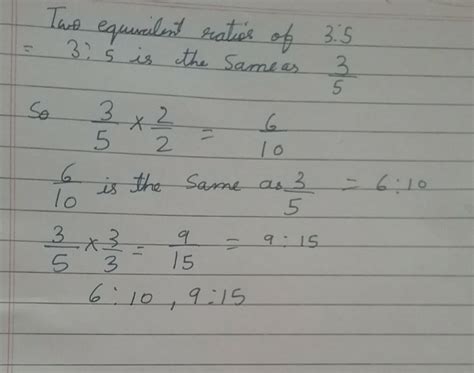 Two equivalent ratios of 3:5
= 3:5 is the same as 3/5
So 3/5 × 2/2 = 6/10
6/10 is the same as 3/5 = 6:10
3/5 × 3/3 = 9/15 = 9:15
6:10, 9:15